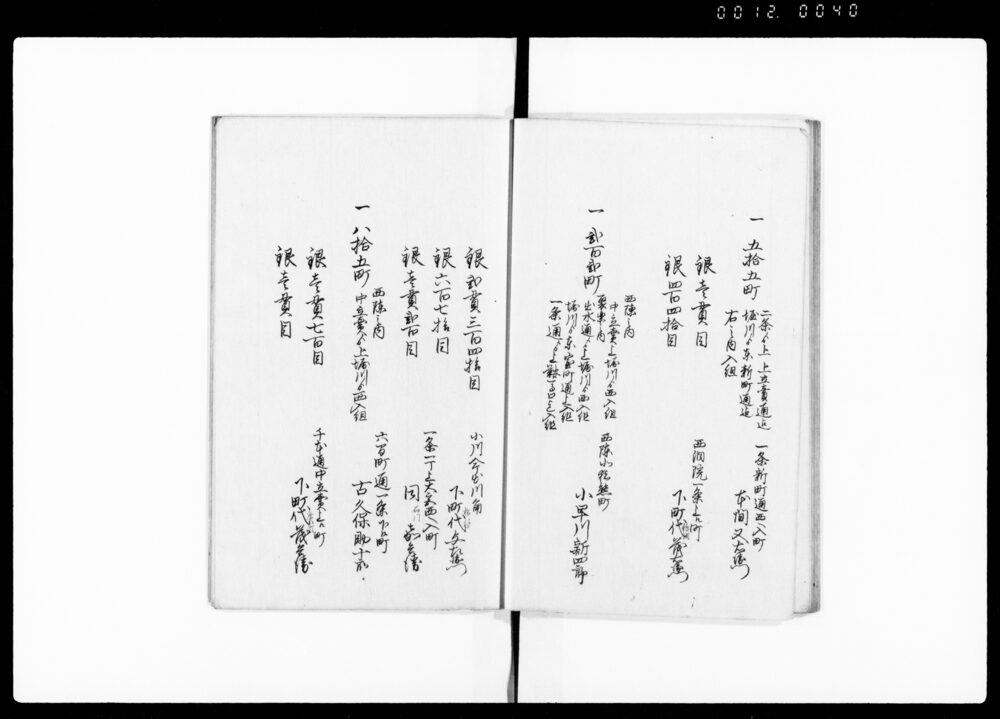 0012. 0040
一 五拾五町
二条ゟ上上立賣通迄
堀川ゟ東新町通迄
右之内入組
一条新町通西入町
本間又右衛門
銀壱貫目
銀四百四拾目
西洞院一条上ル町
下町代
一 弐百弐町
西陣之内
中立賣ゟ上堀川ゟ西入組
聚楽之内
出水通ゟ上堀川ゟ西入組
堀川ゟ東
一条通ゟ上
西陣小猪熊町
小早川新四郎
銀弐貫三百四拾目
小川今出川角
下町代
銀六百七拾目
銀壱貫弐百目
一条
西入町
同
一 八拾五町
西陣之内
中立賣ゟ上堀川ゟ西入組
六軒町通一条下ル町
古久保助十郎
銀壱貫七百目
千本通中立賣上ル町
下町代
銀壱貫目